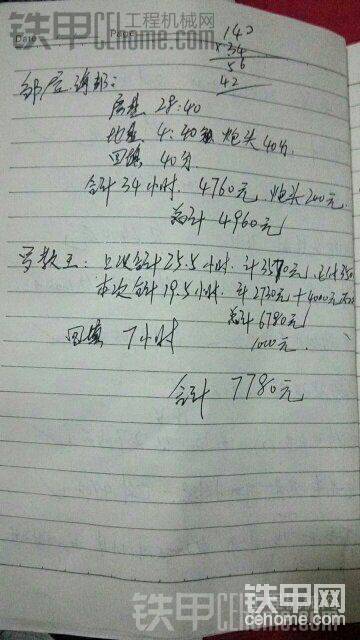 铁甲 工程机械网
CEhome.com
Date
Page
140
×34
56
42
房基 28:40
地基 4:40 炮头 40分
回填 40分
合计 34小时. 4760元 炮头200元
总计 4960元
合计25.5小时. 计3570元
本次合计19.5小时. 计2730元 + 4000元
总计 6780元
回填 7小时 1000元.
合计 7780元
铁甲网
cehome.com
铁甲CEhome.com